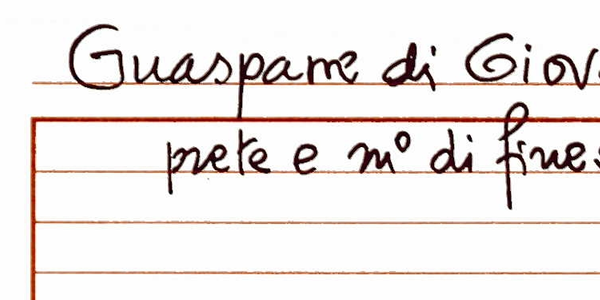 Guasparre di Giov
prete e mº di fines